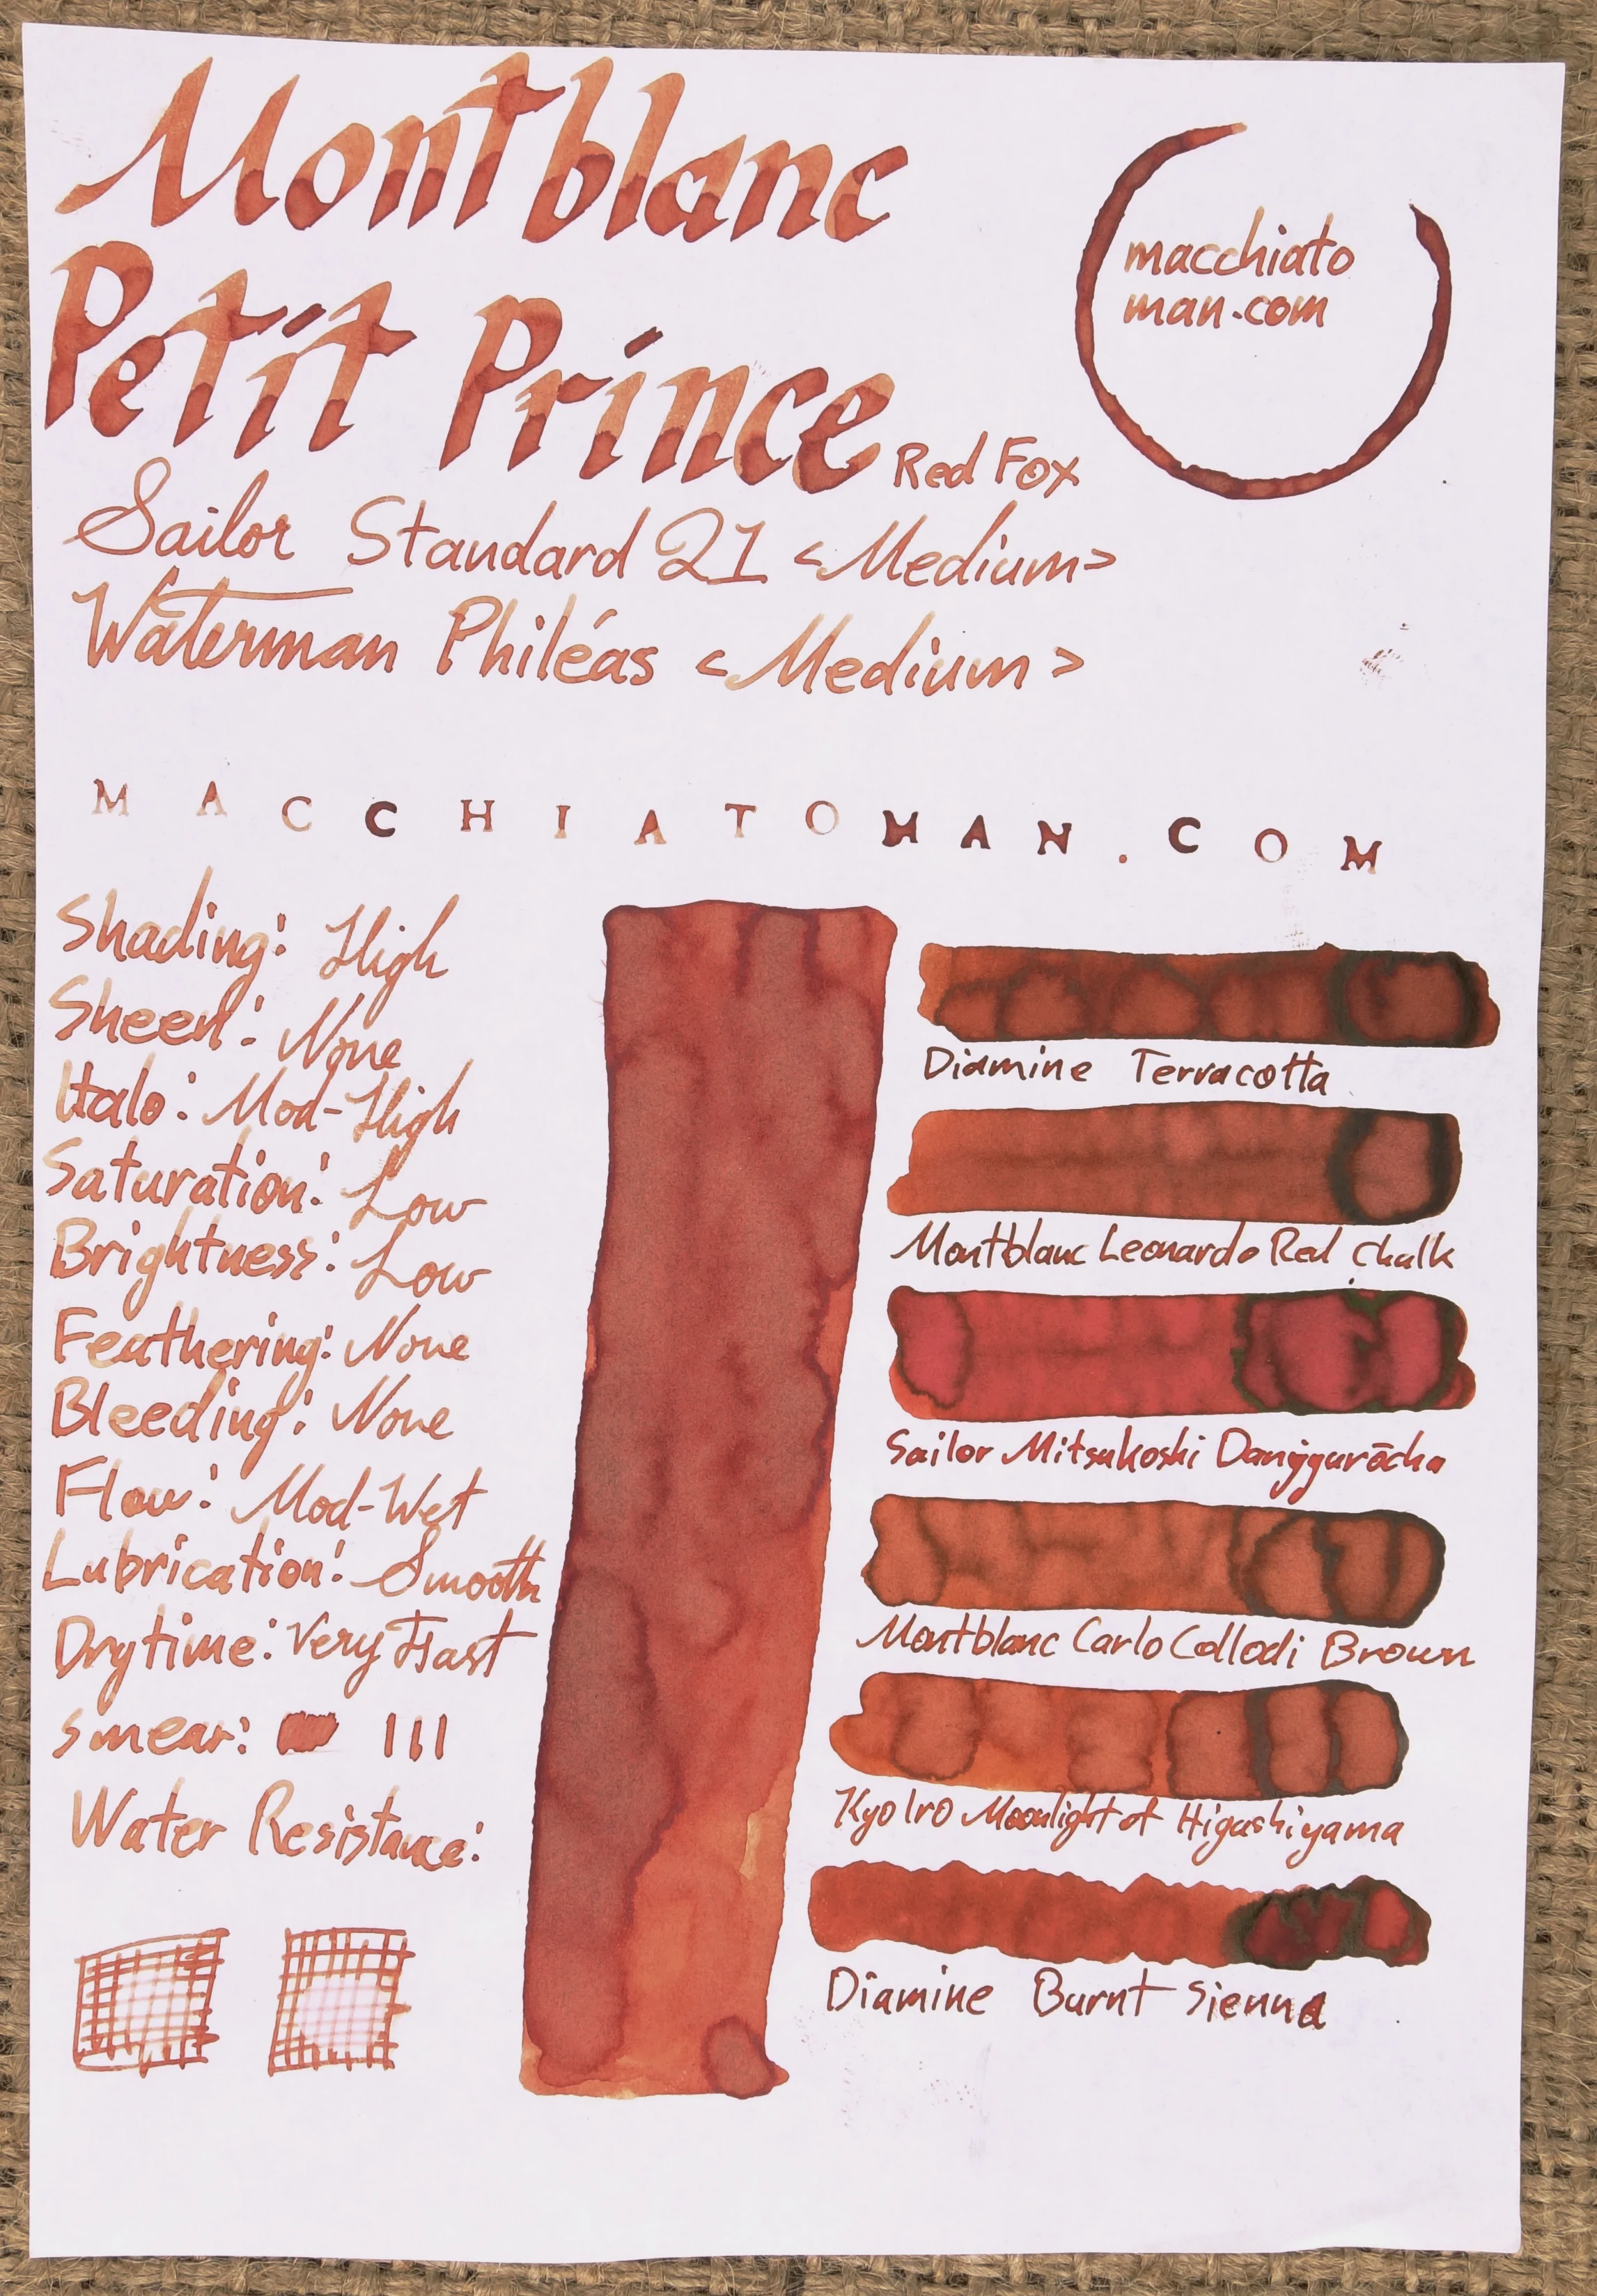 Montblanc
Petit Prince Red Fox
macchiato
man.com
Sailor Standard 21 <Medium>
Waterman Philéas <Medium>
MACCHIATOMAN.COM
Shading: High
Sheen: None
Halo: Mod-High
Saturation: Low
Brightness: Low
Feathering: None
Bleeding: None
Flow: Mod-Wet
Lubrication: Smooth
Drytime: Very Fast
Smear:
Water Resistance:
Diamine Terracotta
Montblanc Leonardo Red Chalk
Sailor Mitsukoshi
Montblanc Carlo Collodi Brown
Kyo Iro Moonlight of Higashiyama
Diamine Burnt Sienna